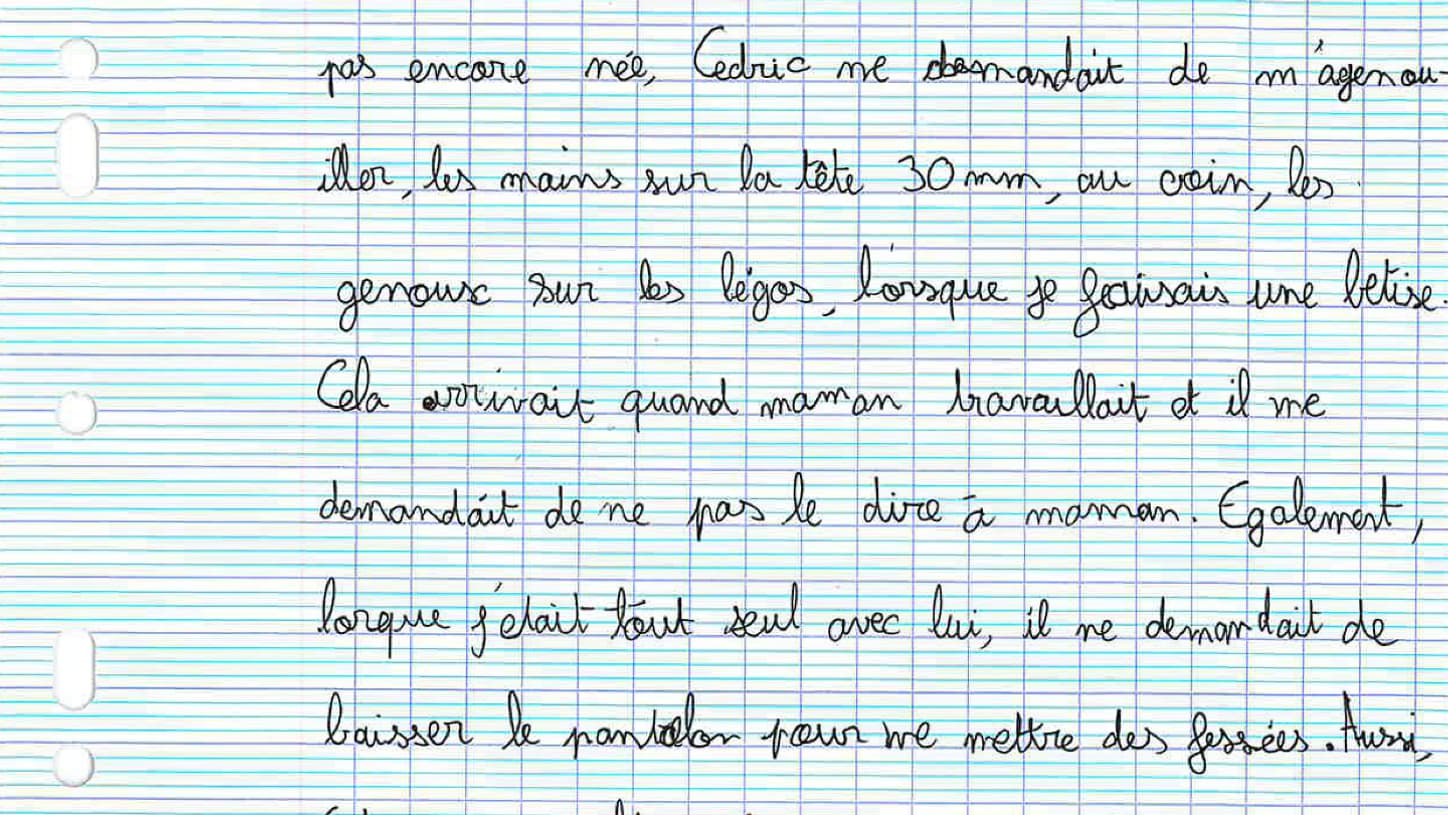 pas encore née, Cedric me demandait de m'agenou-
iller, les mains sur la tête 30 mm, au coin, les
genoux sur les légos, lorsque je faisais une betise.
Cela arrivait quand maman travaillait et il me
demandait de ne pas le dire à maman. Egalement,
lorque j'etait tout seul avec lui, il me demandait de
baisser le pantalon pour me mettre des fessées. Aussi,